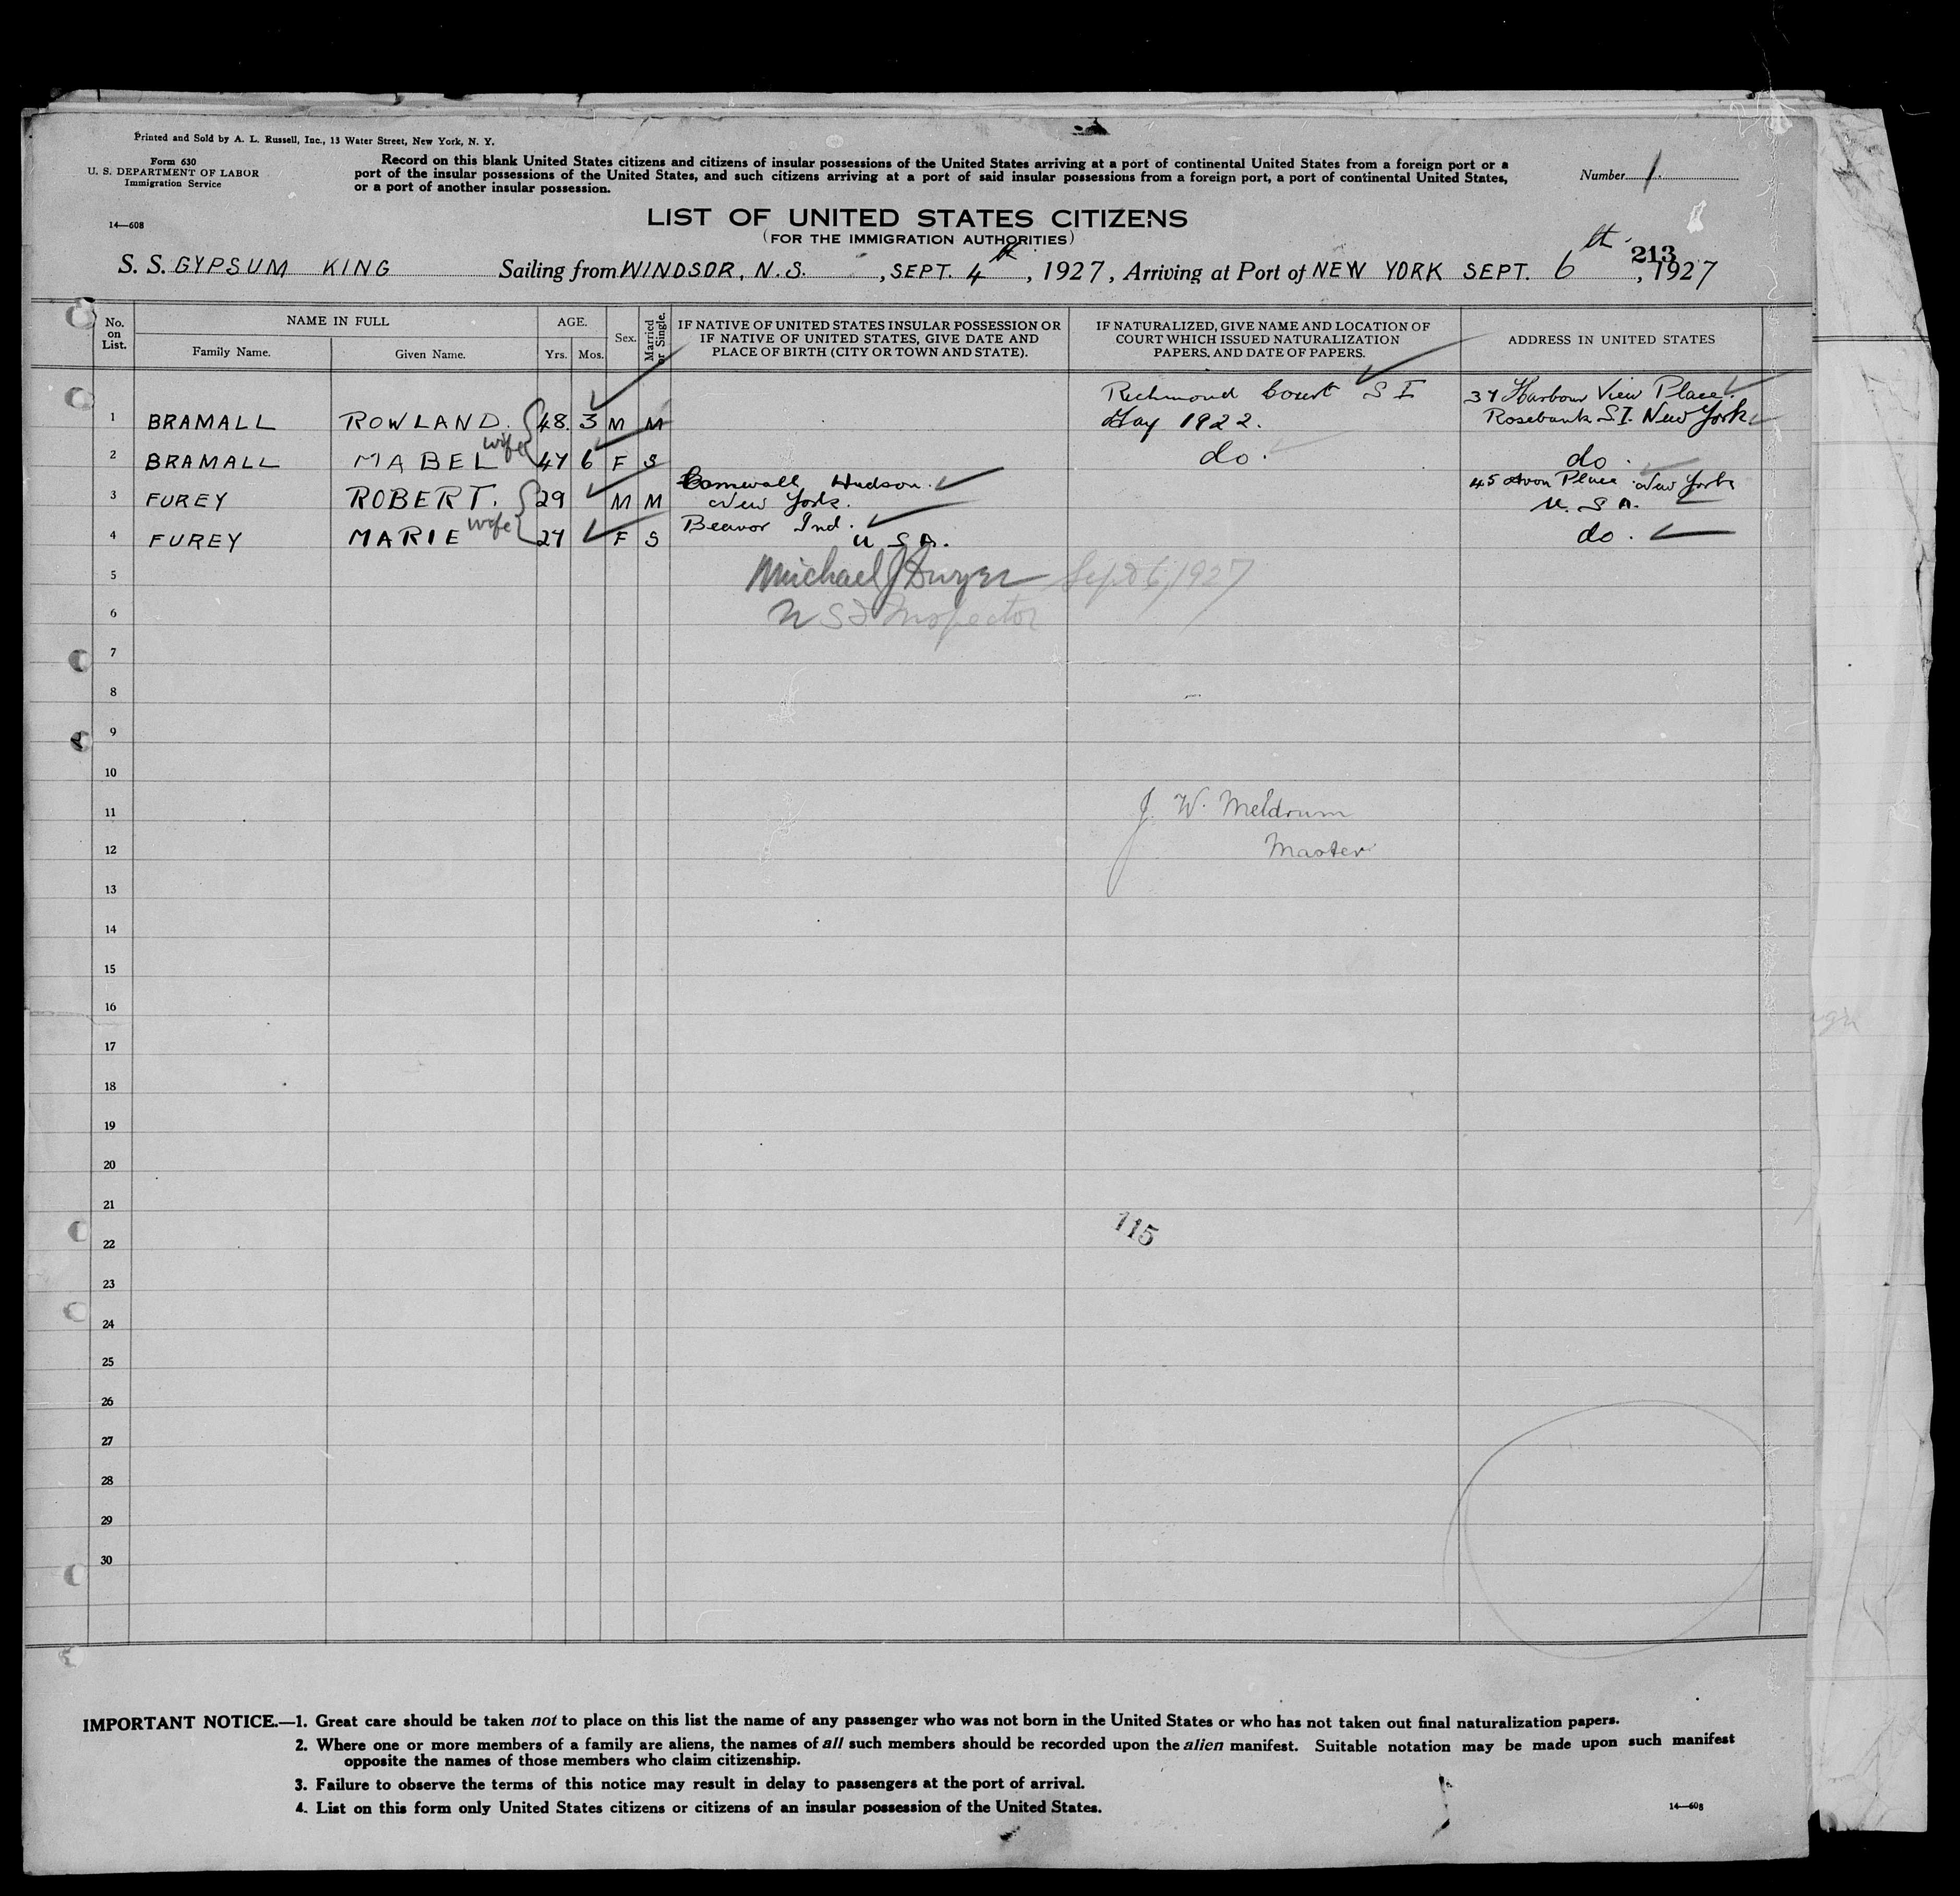 Printed and Sold by A. L. Russell, Inc., 13 Water Street, New York, N. Y.
Form 630
U. S. DEPARTMENT OF LABOR
Immigration Service
14—608
Record on this blank United States citizens and citizens of insular possessions of the United States arriving at a port of continental United States from a foreign port or a
port of the insular possessions of the United States, and such citizens arriving at a port of said insular possessions from a foreign port, a port of continental United States,
or a port of another insular possession.
Number 1.
LIST OF UNITED STATES CITIZENS
(FOR THE IMMIGRATION AUTHORITIES)
213
S. S. GYPSUM KING Sailing from WINDSOR, N.S. , SEPT. 4th, 1927, Arriving at Port of NEW YORK SEPT. 6th, 1927
No. on List.
NAME IN FULL
Family Name. Given Name.
AGE.
Yrs. Mos.
Sex.
Married or Single.
IF NATIVE OF UNITED STATES INSULAR POSSESSION OR
IF NATIVE OF UNITED STATES, GIVE DATE AND
PLACE OF BIRTH (CITY OR TOWN AND STATE).
IF NATURALIZED, GIVE NAME AND LOCATION OF
COURT WHICH ISSUED NATURALIZATION
PAPERS, AND DATE OF PAPERS.
ADDRESS IN UNITED STATES
Richmond Court S I 37 Harbour View Place.
1 BRAMALL ROWLAND. 48. 3 M M May 1922. Rosebank S.I. New York.
wife
2 BRAMALL MABEL 47 6 F S do. do.
Cornwall Hudson. 45 Avon Place New York
3 FUREY ROBERT. 29 M M New York. U. S A.
wife Beavor Ind.
4 FUREY MARIE 27 F S U S A. do.
5 Michael J Dwyer Sept 6, 1927
6 U S I Inspector
7
8
9
10
11 J. W. Meldrum
12 Master
13
14
15
16
17
18
19
20
21
115
22
23
24
25
26
27
28
29
30
IMPORTANT NOTICE.—1. Great care should be taken not to place on this list the name of any passenger who was not born in the United States or who has not taken out final naturalization papers.
2. Where one or more members of a family are aliens, the names of all such members should be recorded upon the alien manifest. Suitable notation may be made upon such manifest
opposite the names of those members who claim citizenship.
3. Failure to observe the terms of this notice may result in delay to passengers at the port of arrival.
4. List on this form only United States citizens or citizens of an insular possession of the United States.
14—608